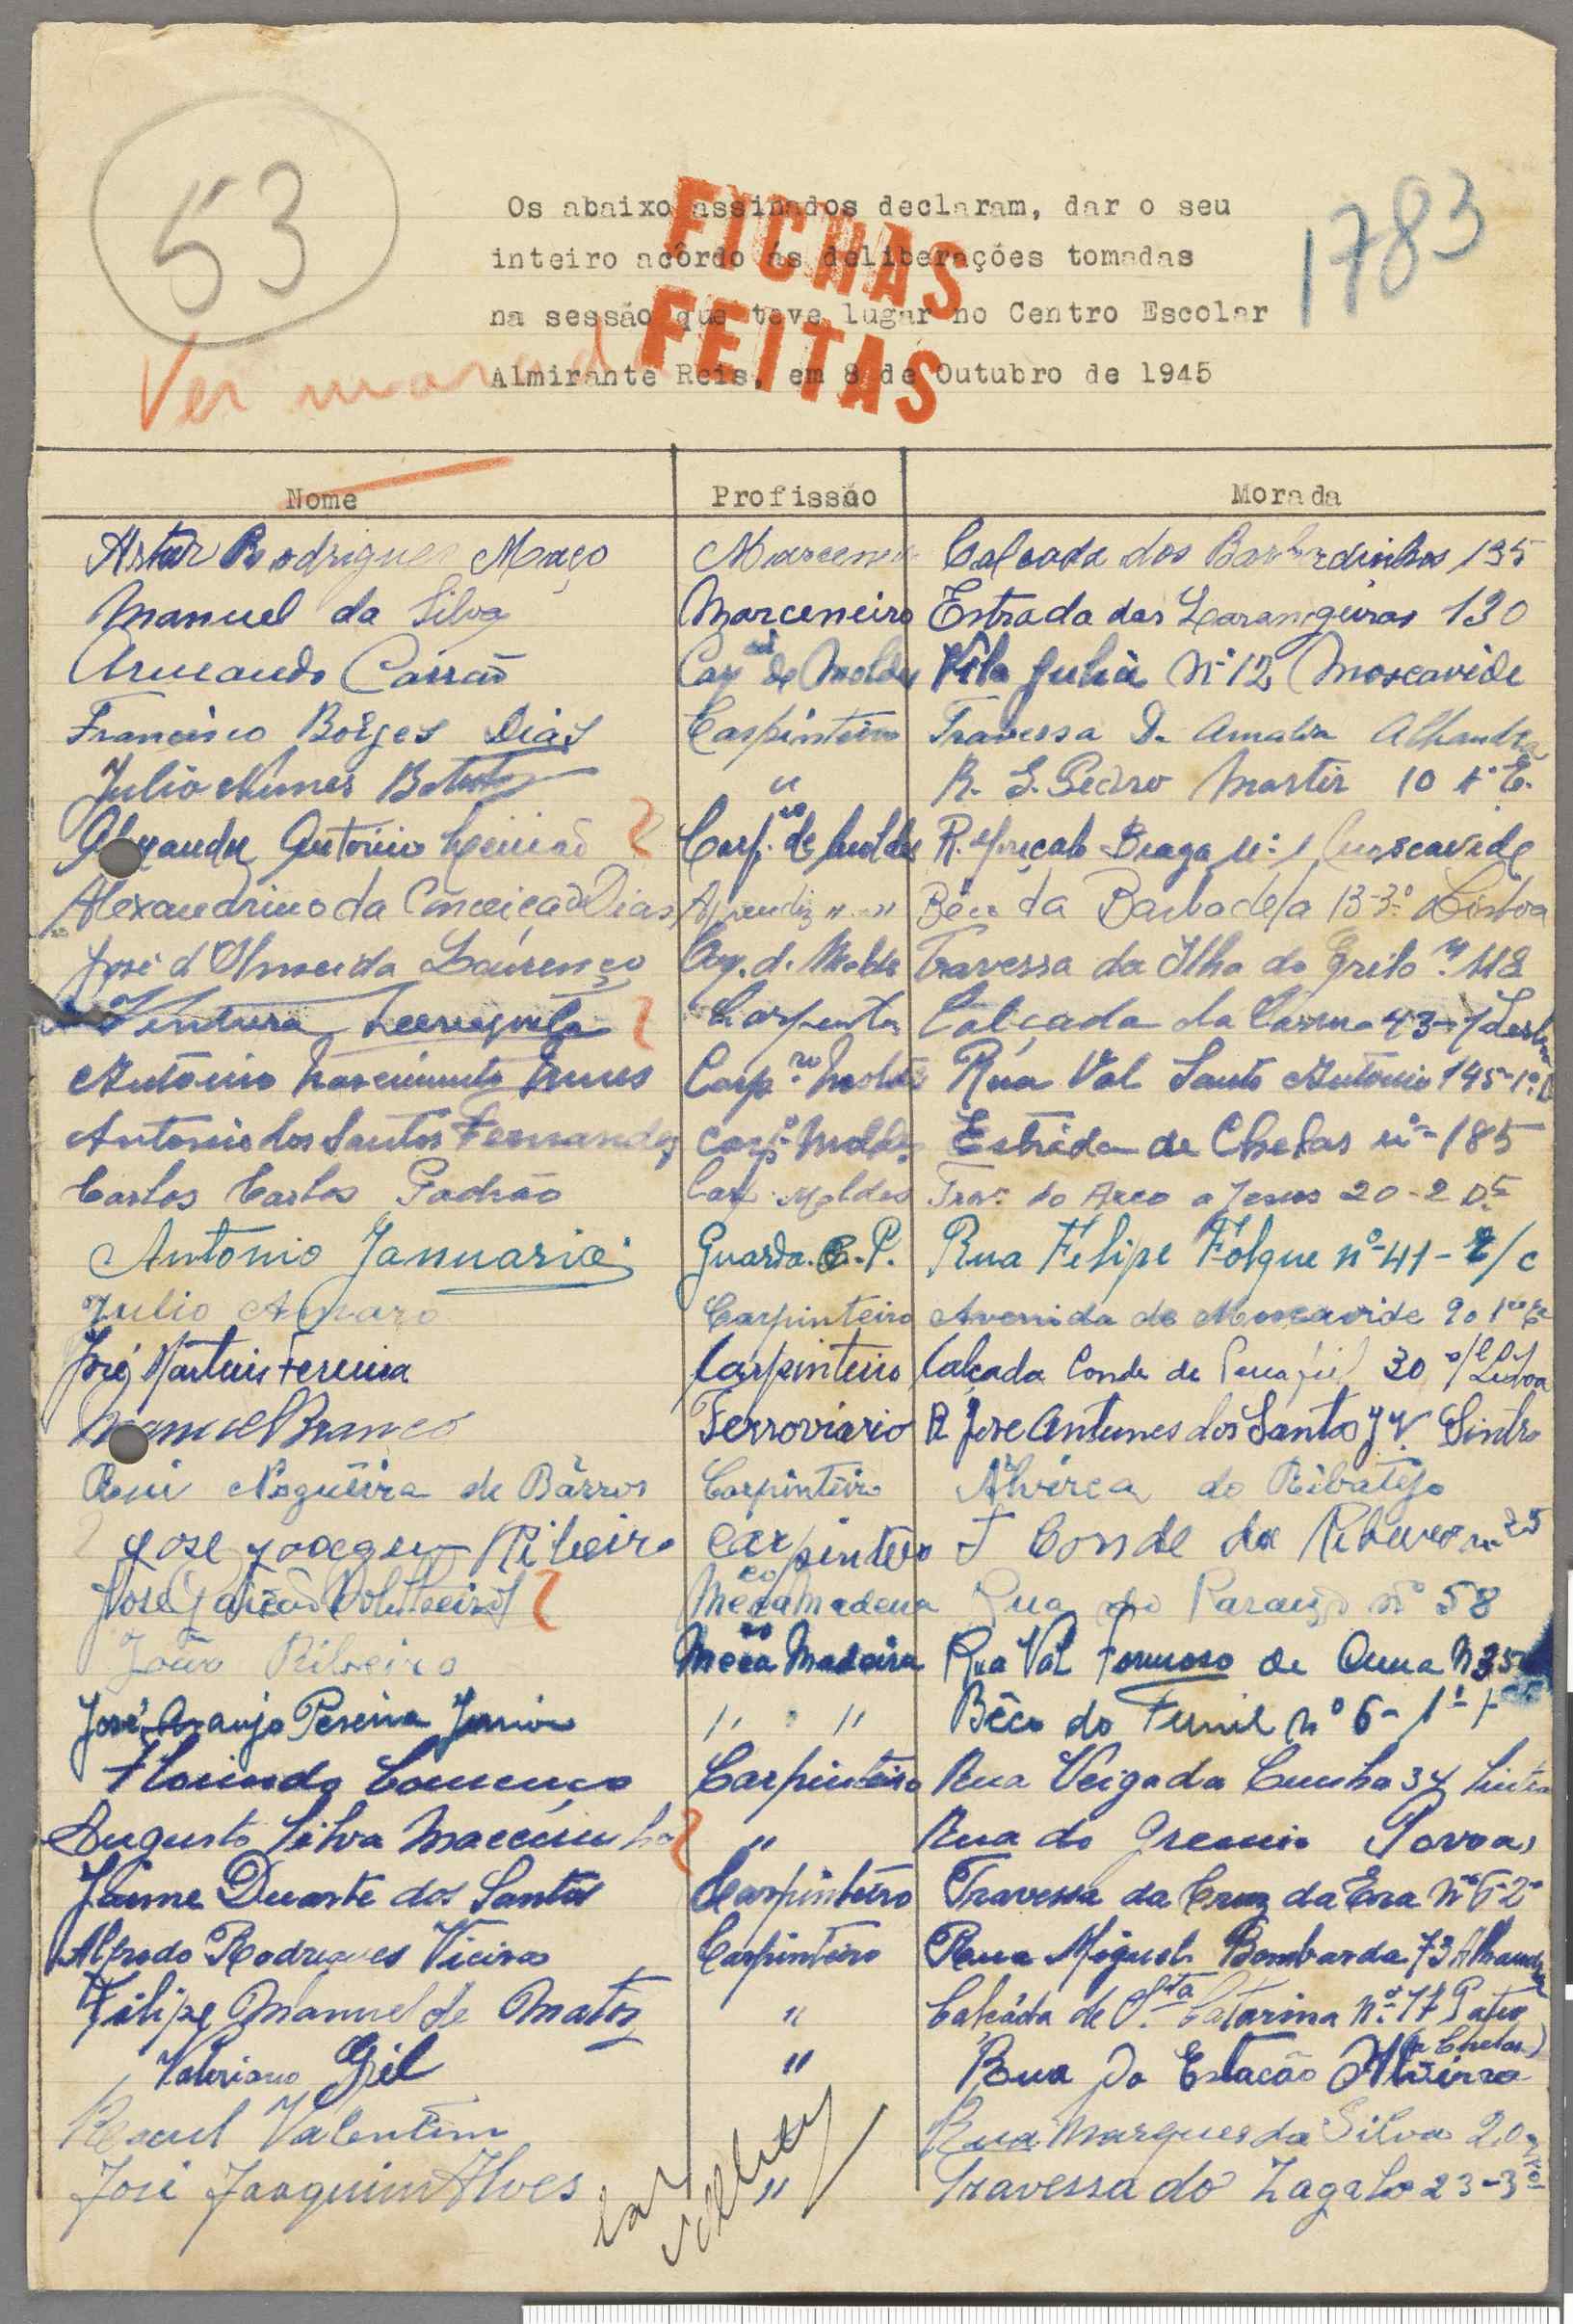 53
1783
Os abaixo assinados declaram, dar o seu
inteiro acôrdo ás deliberações tomadas
na sessão que teve lugar no Centro Escolar
Almirante Reis, em 8 de Outubro de 1945
FICHAS
FEITAS
Ver morada
Nome Profissão Morada
Artur Rodrigues Maço Marceneiro Calçada dos Barbadinhos 135
Manuel da Silva Marceneiro Estrada das Larangeiras 130
Armando Carrão Car de Moldes Vila Julia Nº 12 Moscavide
Francisco Borges Dias Carpinteiro Travessa D. Amalia Alhandra
Julio Nunes " R. S. Pedro Martir 10 1º E.
Antonio Carp. de Moldes R. Braga nº 1 Moscavide
Alexandrino da Conceição Dias Aprendiz " " Bêco da Barbadela 13-3º Lisboa
José d'Almeida Lourenço Carp. de Molde Travessa da Ilha do Grilo 118
Ventura Carpinteiro Calçada do 43-
António Nascimento Carp.ro Moldes Rua Val Santo António 145-1º
Antonio dos Santos Fernandes Carpº Moldes Estrada de Chelas nº 185
Carlos Carlos Padrão Car Moldes Trav. do Arco a Jesus 20-2 Dº
Antonio Januario Guarda. C.P. Rua Felipe Folque nº 41-r/c
Julio Amaro Carpinteiro Avenida de Moscavide 90 1º E
José Martins Ferreira Carpinteiro Calçada Conde de Penafiel 30 Lisboa
Manuel Branco Ferroviario R Jose Antunes dos Santos J V Sintra
Rui Nogueira de Barros Carpinteiro Alverca do Ribatejo
José Ribeiro Carpinteiro T Conde da Ribeira nº 25
José Meco Madeira Rua do Paraizo nº 58
João Ribeiro Meco Madeira Rua Val Formoso de Cima N 35
José Araujo Pereira Junior " " Bêco do Funil nº 6-1º
Florindo Lourenço Carpinteiro Rua Veiga da Cunha 34 Sintra
Augusto Silva " Rua do Gremio Povoa
Jaime Duarte dos Santos Carpinteiro Travessa da Cruz da Era nº 6-2º
Alfredo Rodrigues Vieira Carpinteiro Rua Miguel Bombarda 73 Alhandra
Filipe Manuel de Matos " Calçada de Sta Catarina nº 17 Pateo
(a Chelas)
Valeriano Gil " Rua da Estacão Alverca
Raul Valentim Rua Marques da Silva 20
José Joaquim Alves " Travessa do Zagalo 23-3º